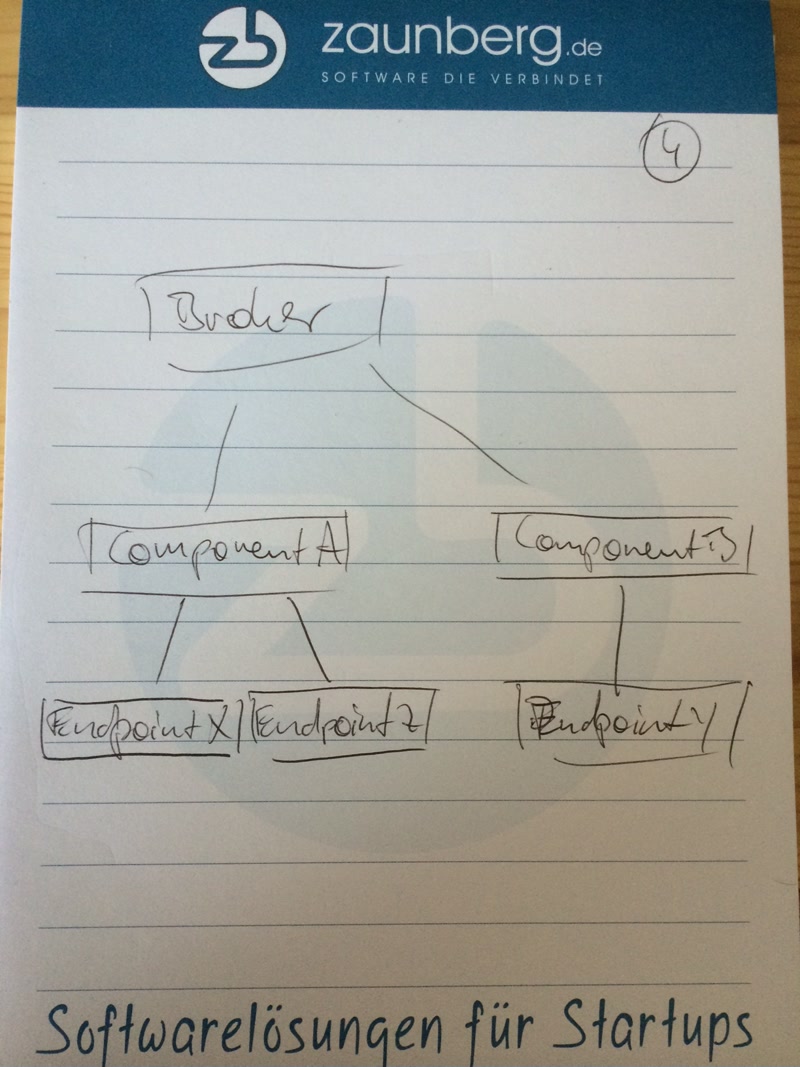 zb zaunberg.de
SOFTWARE DIE VERBINDET
4
Broker
Component A Component B
Endpoint X Endpoint Z Endpoint Y
Softwarelösungen für Startups